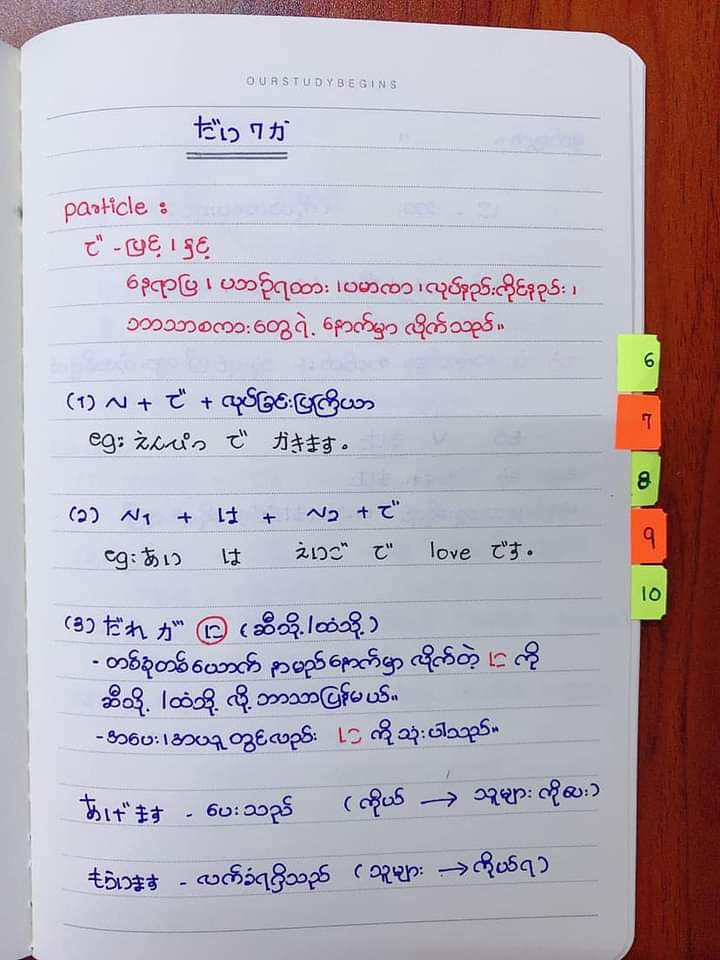 OURSTUDYBEGINS
だい 7 か
particle :
で - ဖြင့် ၊ ၌၊ နှင့်
နေရာပြ ၊ ပဘာဉ်ရထား ၊ ပမာဏ ၊ လုပ်နည်းကိုင်နည်း ၊
ဘာသာစကားတွေရဲ့ နောက်မှာ လိုက်သည်။
(1) N + で + လုပ်ခြင်းပြကြိယာ
eg: えんぴつ で かきます。
(2) N1 + は + N2 + で
eg: あい は えいご で love です。
(3) だれ が に (ဆီသို့ / ထံသို့)
- တစ်စုံတစ်ယောက် နာမည်နောက်မှာ လိုက်တဲ့ に ကို
ဆီသို့ / ထံသို့ လို့ ဘာသာပြန်မယ်။
- အပေး ၊ အယူ တွင်လည်း に ကို သုံးပါသည်။
あげます - ပေးသည် (ကိုယ် → သူများ ကိုပေး)
もらいます - လက်ခံရရှိသည် (သူများ → ကိုယ်ရ)
6
7
8
9
10